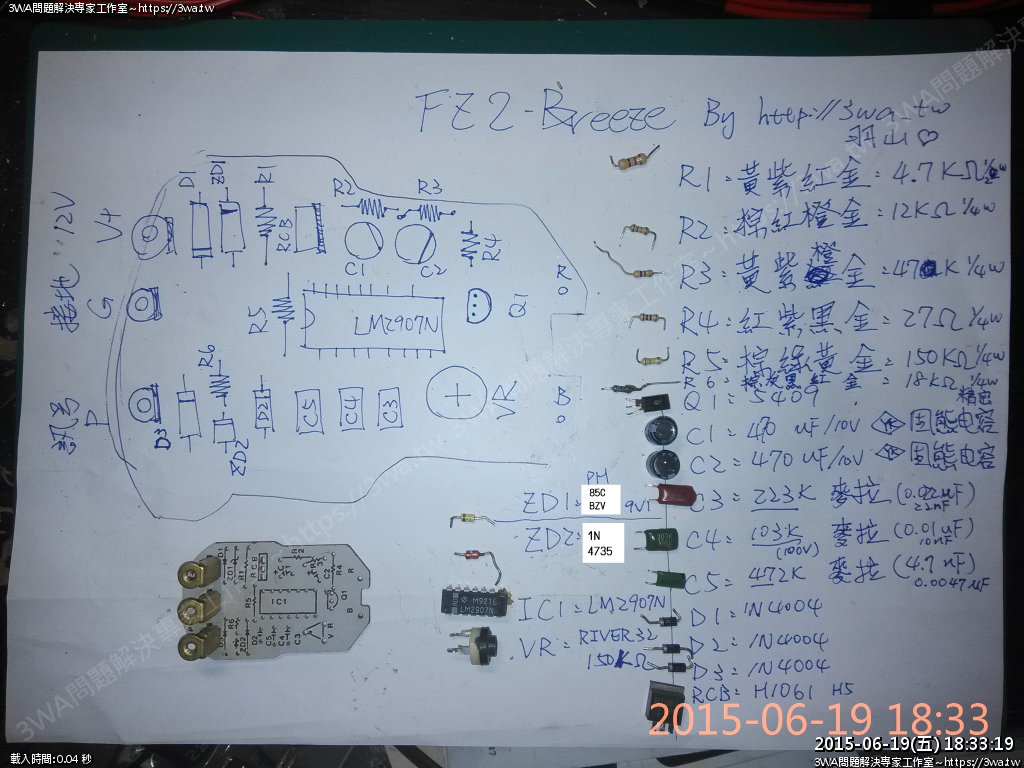 3WA問題解決專家工作室~https://3wa.tw
FZ2-Breeze By http://3wa.tw
羽山♡
R1=黃紫紅金=4.7KΩ 1/4w
R2=棕紅橙金=12KΩ 1/4w
R3=黃紫橙金=47K 1/4w
R4=紅紫黑金=27Ω 1/4w
R5=棕綠黃金=150KΩ 1/4w
R6=棕灰黑紅金=18KΩ 1/4w
精密
Q1=S409
C1=470 uF/10V 固態电容
C2=470uF/10V 固態电容
C3=223K 麥拉(0.022uF)
22nF
C4=103K 麥拉(0.01uF)
(100V) 10nF
C5=472K 麥拉(4.7nF)
0.0047uF
D1=1N4004
D2=1N4004
D3=1N4004
RCB=H1061 H5
PH
ZD1= 85C BZV 9V1
ZD2= 1N 4735
IC1=LM2907N
VR=RIVER32
150KΩ
12V
V+
接地
G
訊号
P
D1
ZD1
R1
RCB
R2
R3
C1
C2
R4
R5
LM2907N
Q1
R
B
R6
D3
ZD2
D2
C5
C4
C3
VR
M921E
LM2907N
IC1
2015-06-19 18:33
2015-06-19(五) 18:33:19
載入時間:0.04 秒
3WA問題解決專家工作室~https://3wa.tw